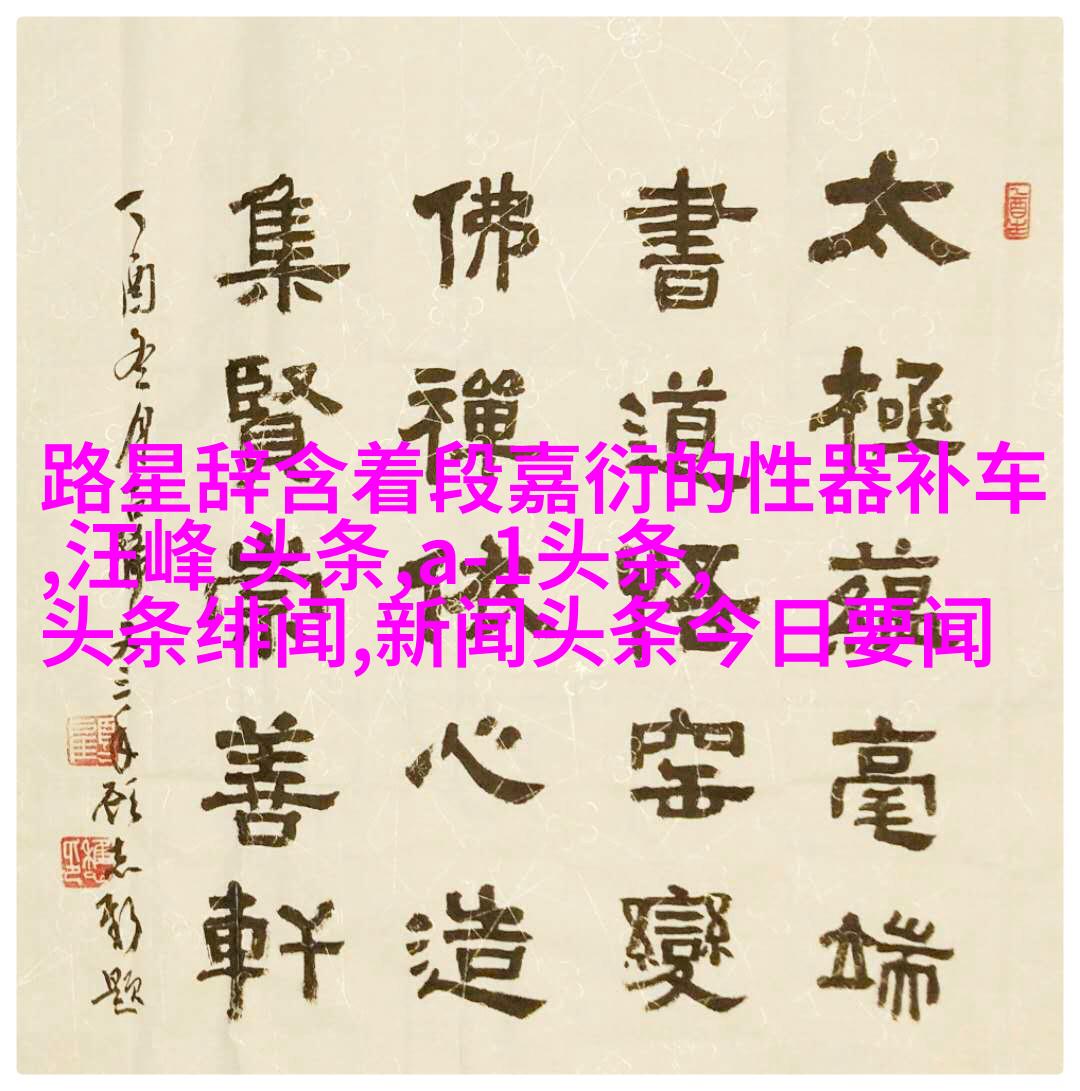 路星辞含着段嘉衍的性器补车
,汪峰 头条,a-1头条,
头条绯闻,新闻头条今日要闻
太極蘊毫端
書道窑變
佛禪心造
集賢善軒
丁酉冬月